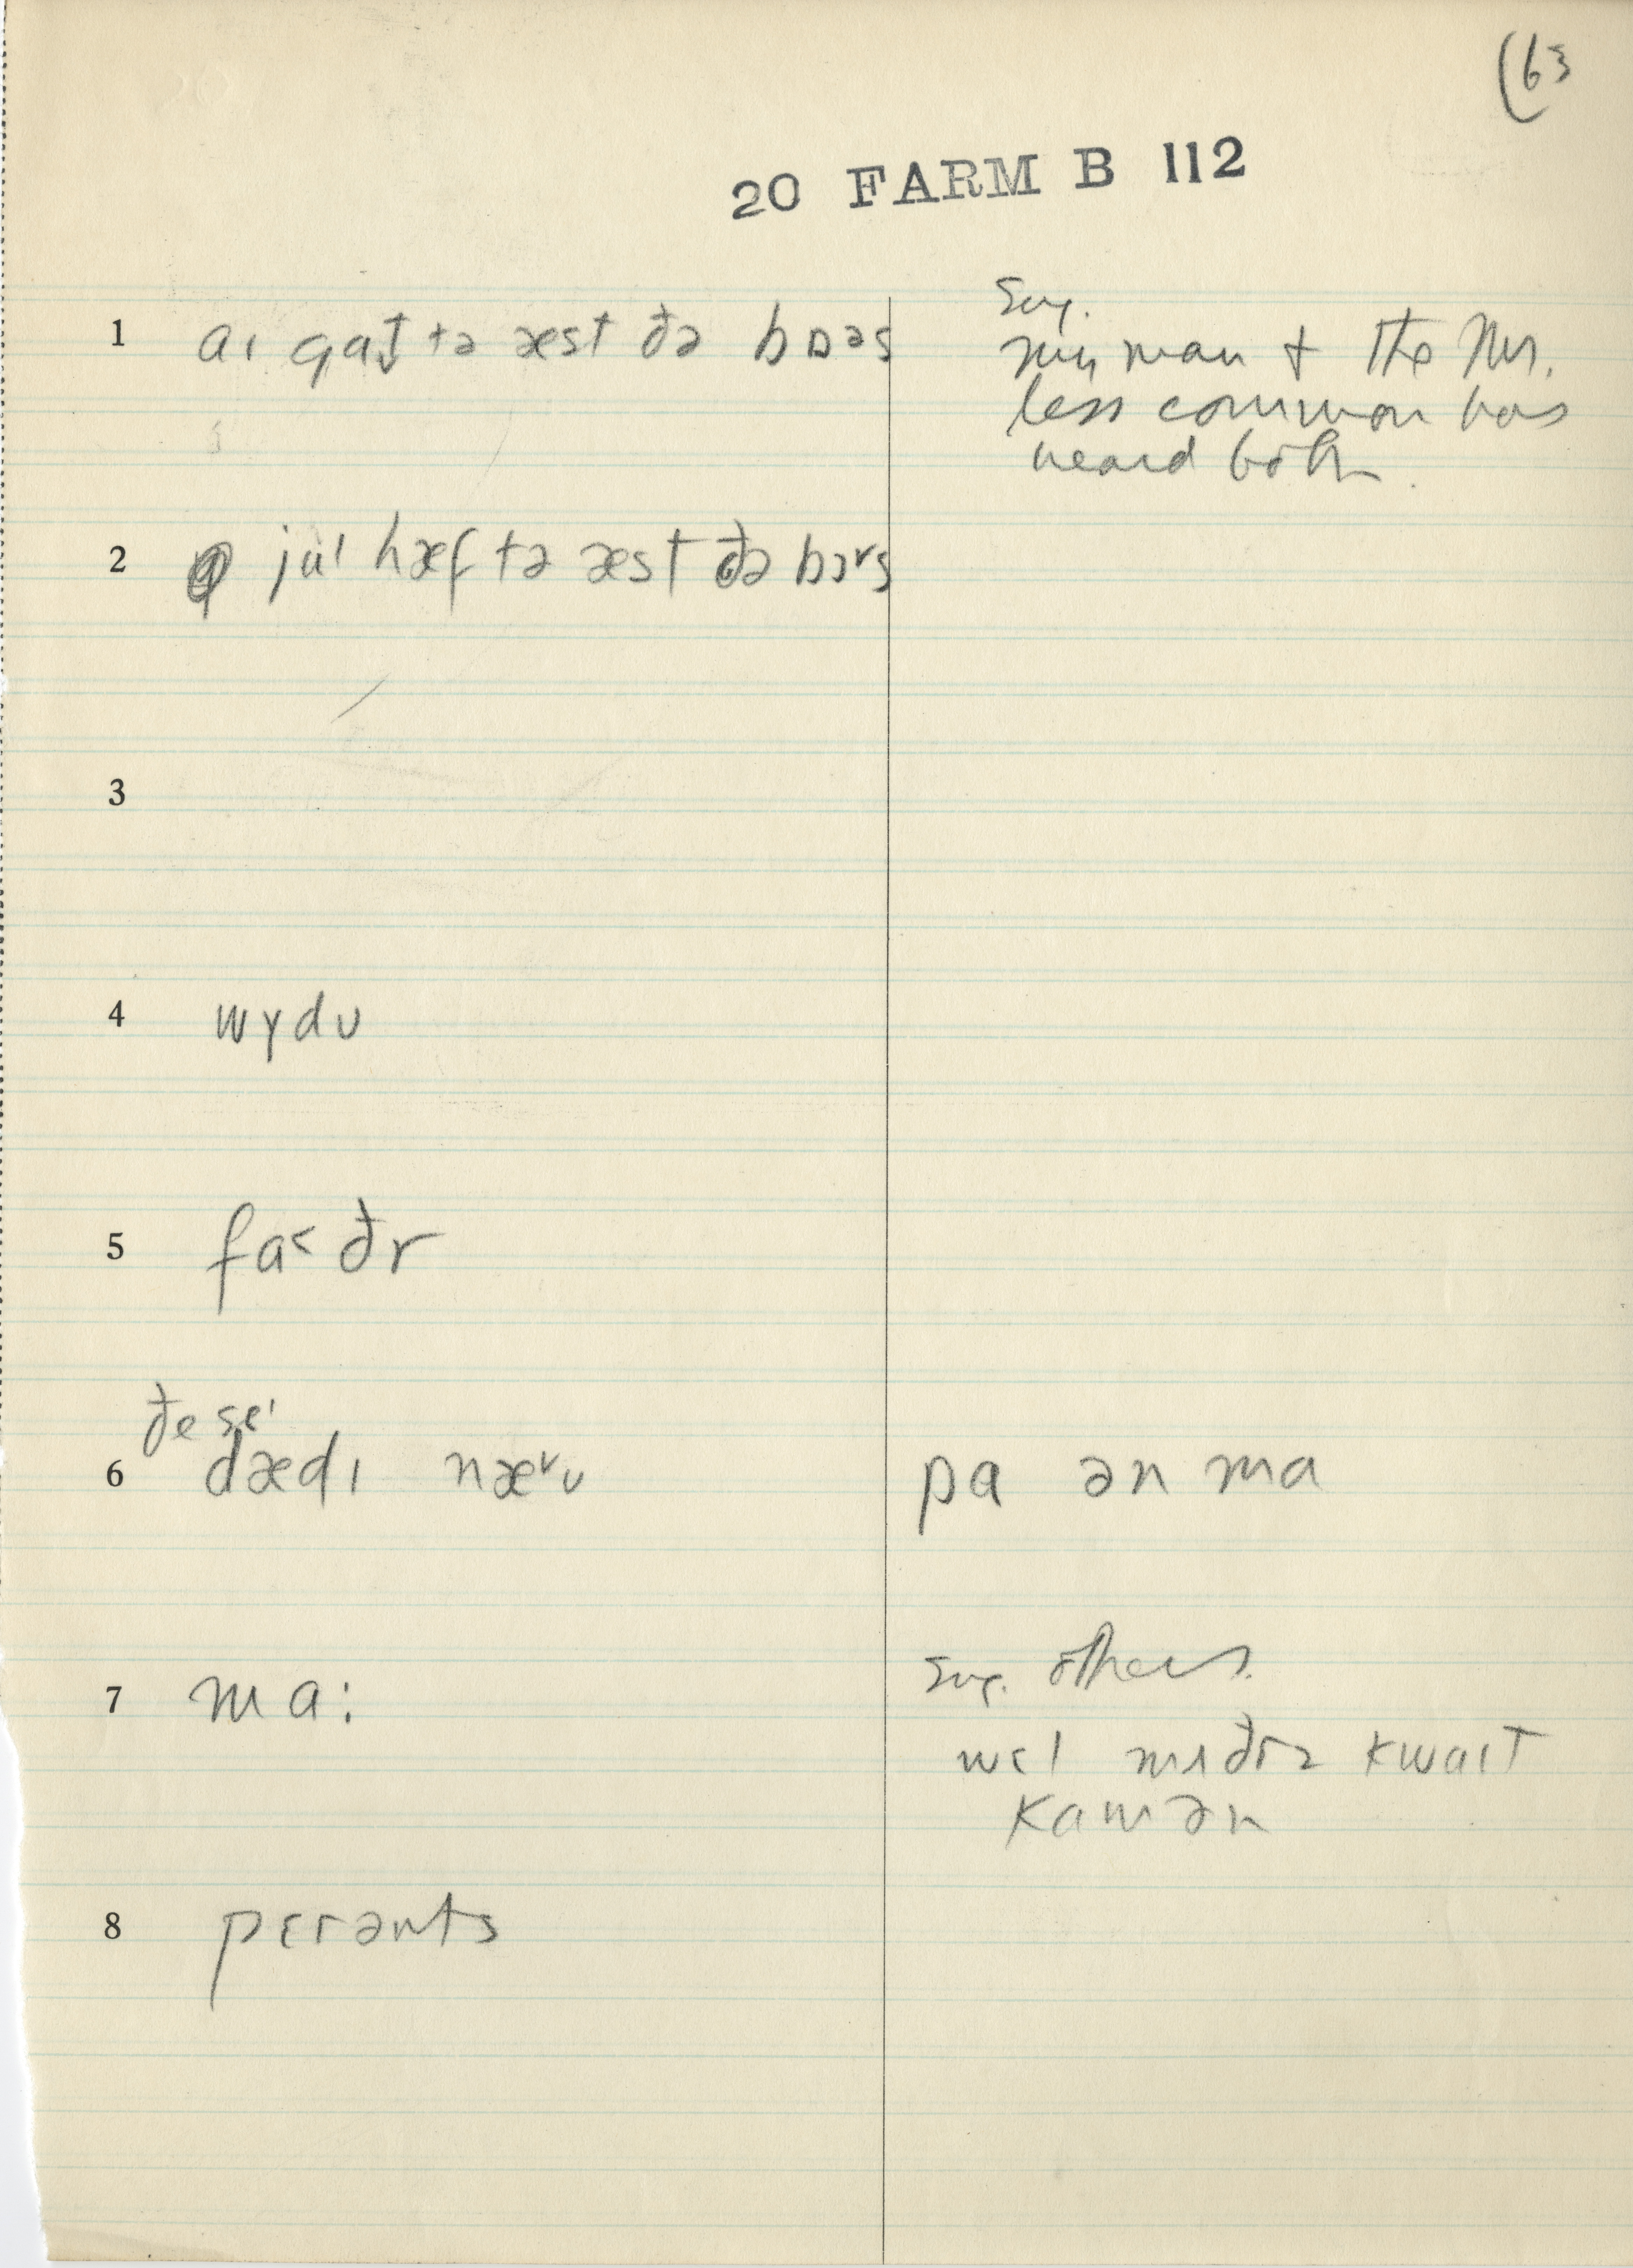 (63
20 FARM B 112
1 aɪ gat̬ tə æst ðə bɒəs
Sug.
my man + the Mrs.
less common has
heard both.
2 ju' hæf tə æst ðə bɔ˅s
3
4 wɪdʊ
5 fa˂ðr
ðe se'
6 dædɪ næ˅ʊ
pa ən ma
7 ma:
Sug. others.
mɪðrz kwaɪt
kamən
8 pɛrənts